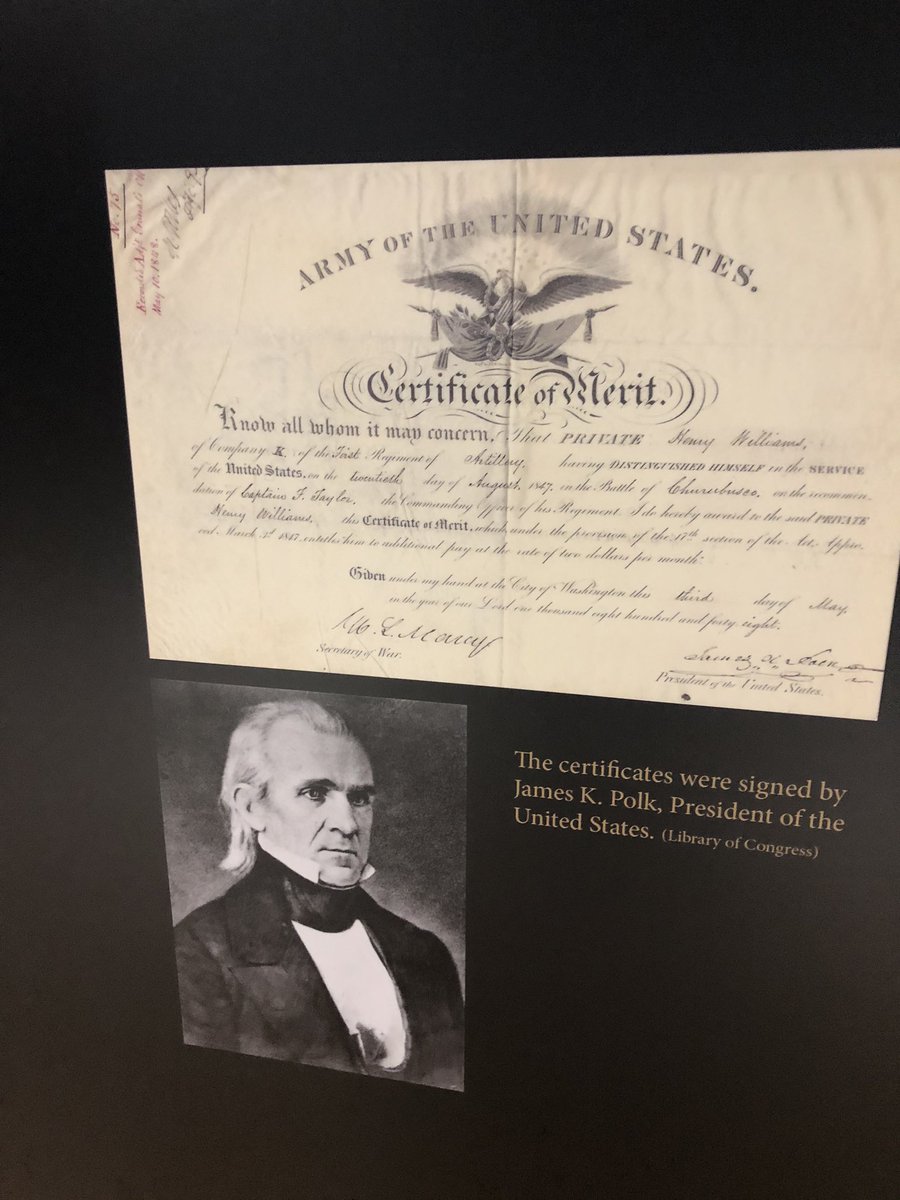 No. 15
May 10. 1848.
ARMY OF THE UNITED STATES.
Certificate of Merit.
Know all whom it may concern, That PRIVATE Henry Williams,
of Company K. of the First Regiment of Artillery. having DISTINGUISHED HIMSELF in the SERVICE
of the United States, on the twentieth day of August, 1847. in the Battle of Churubusco, on the recommen-
dation of Captain F. Taylor, the Commanding Officer of his Regiment. I do hereby award to the said PRIVATE
Henry Williams, this Certificate of Merit, which, under the provision of the 17th section of the Act. Appro-
ved. March 3d 1847. entitles him to additional pay at the rate of two dollars per month.
Given under my hand at the City of Washington this third day of May.
in the year of our Lord one thousand eight hundred and forty eight.
W. L. Marcy
Secretary of War.
James K. Polk
President of the United States.
The certificates were signed by
James K. Polk, President of the
United States. (Library of Congress)